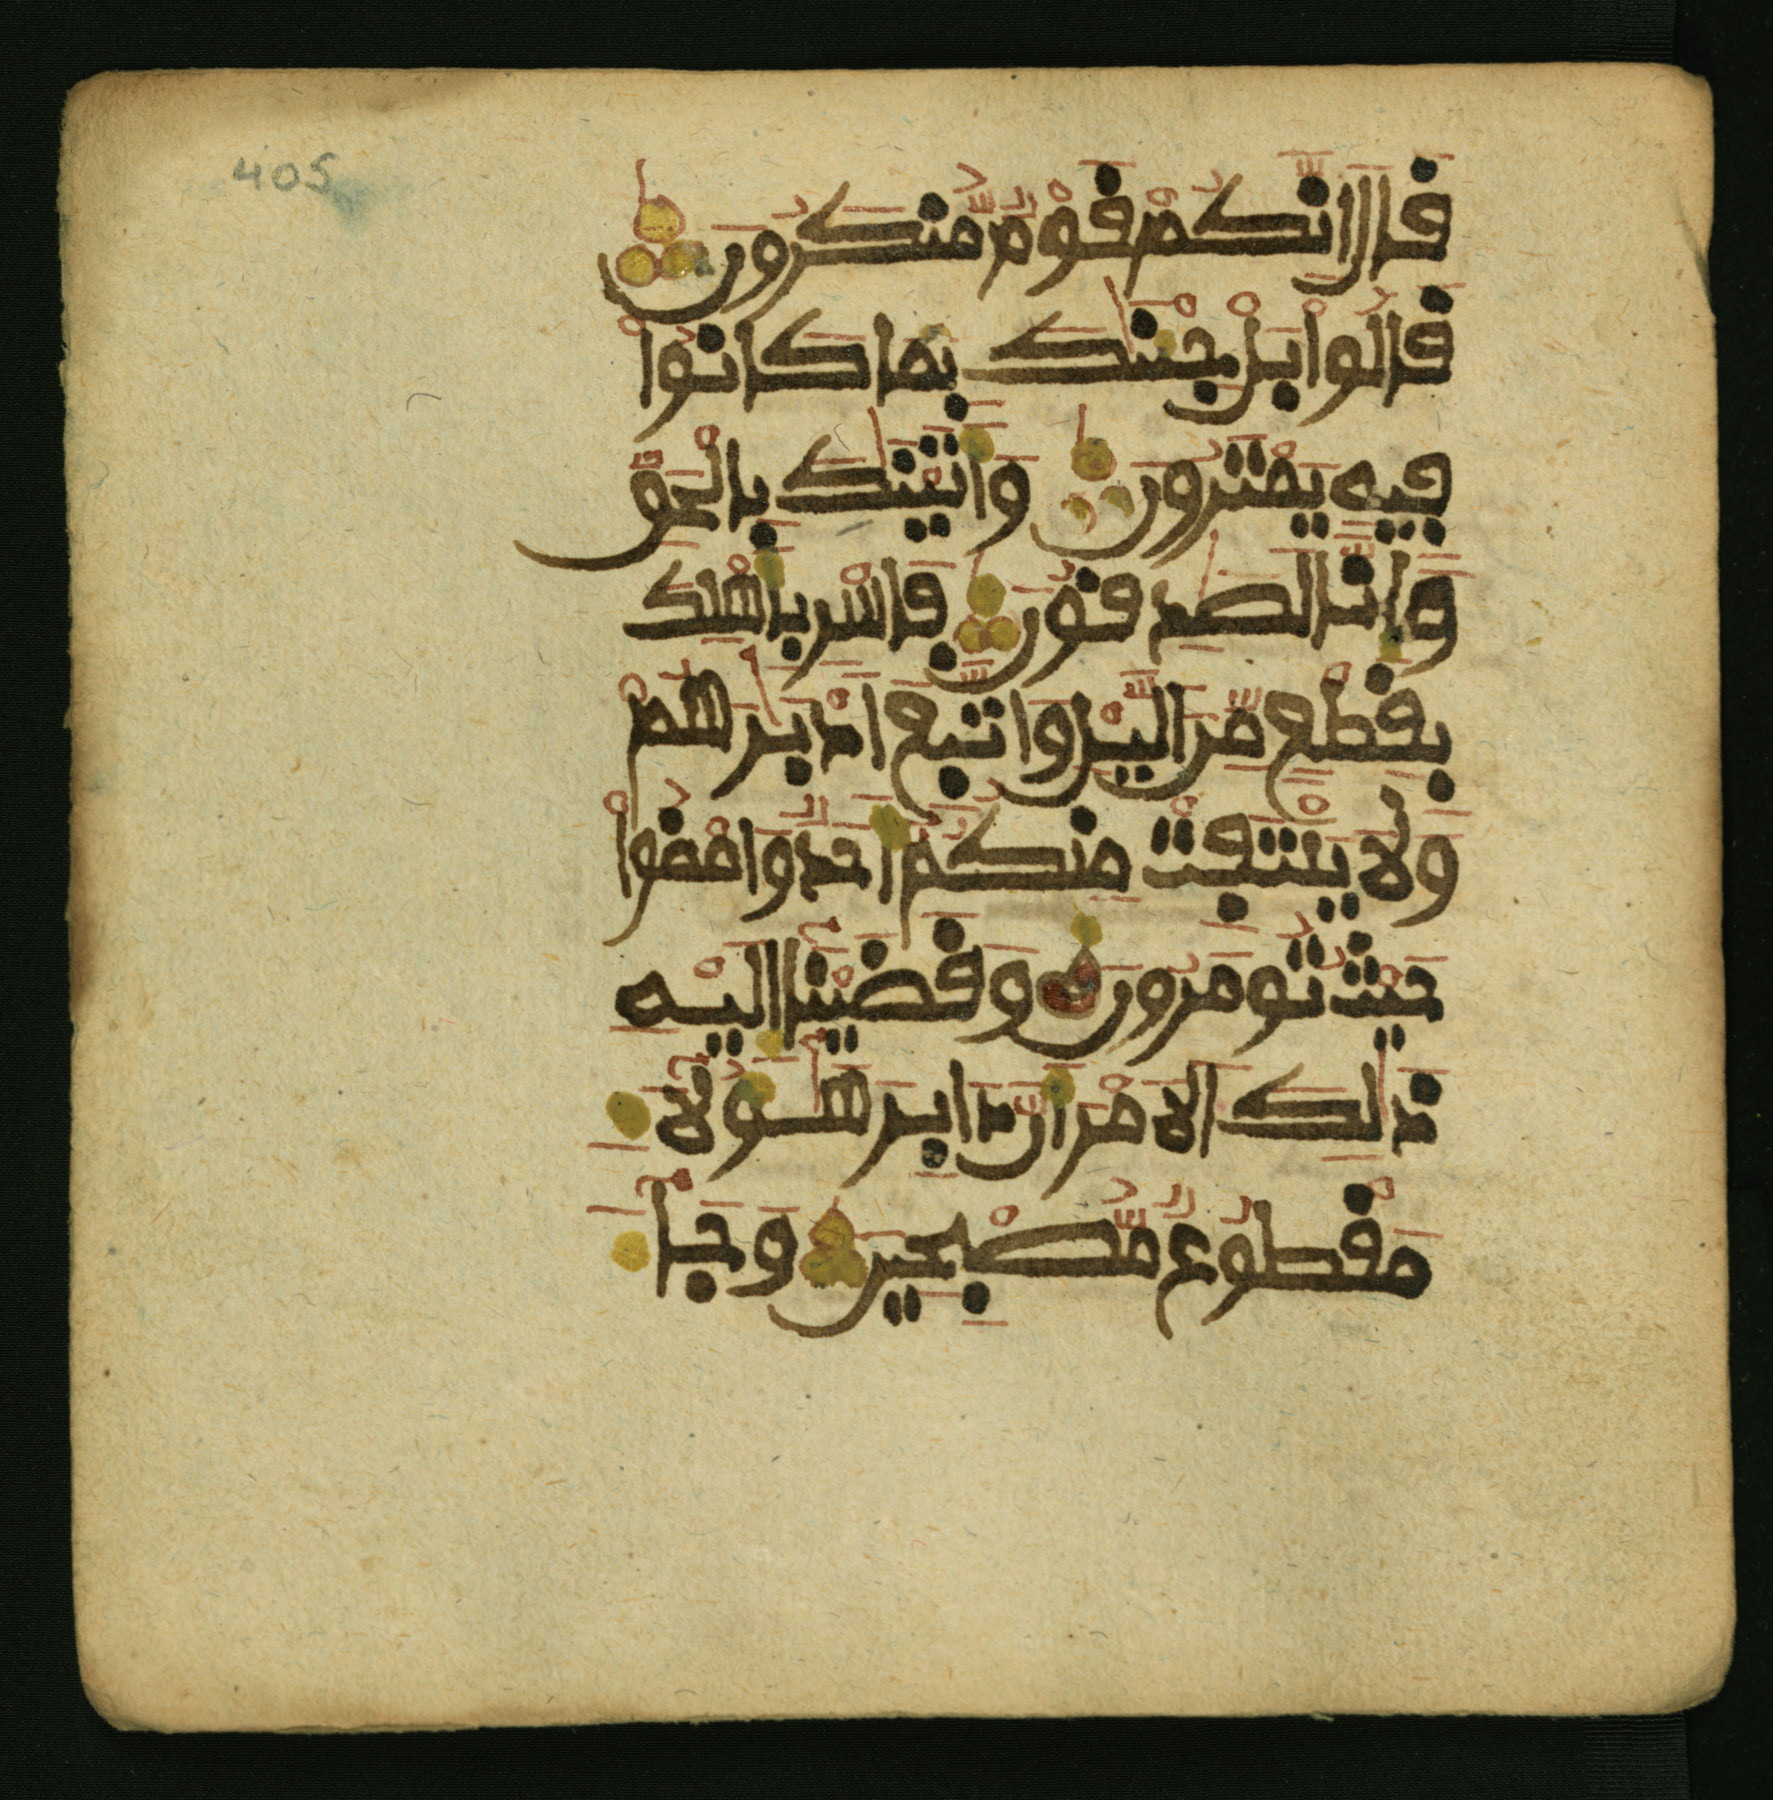 405
قَالَ إِنَّكُمْ قَوْمٌ مُّنكَرُونَ
قَالُواْ بَلْ جِئْنَٰكَ بِمَا كَانُواْ
فِيهِ يَمْتَرُونَ وَأَتَيْنَٰكَ بِالْحَقِّ
وَإِنَّا لَصَٰدِقُونَ فَاسْرِ بِأَهْلِكَ
بِقِطْعٍ مِّنَ الَّيْلِ وَاتَّبِعْ أَدْبَٰرَهُمْ
وَلَا يَلْتَفِتْ مِنكُمْ أَحَدٌ وَامْضُواْ
حَيْثُ تُومَرُونَ وَقَضَيْنَا إِلَيْهِ
ذَٰلِكَ الَامْرَ أَنَّ دَابِرَ هَٰؤُلَاءِ
مَقْطُوعٌ مُّصْبِحِينَ وَجَاءَ